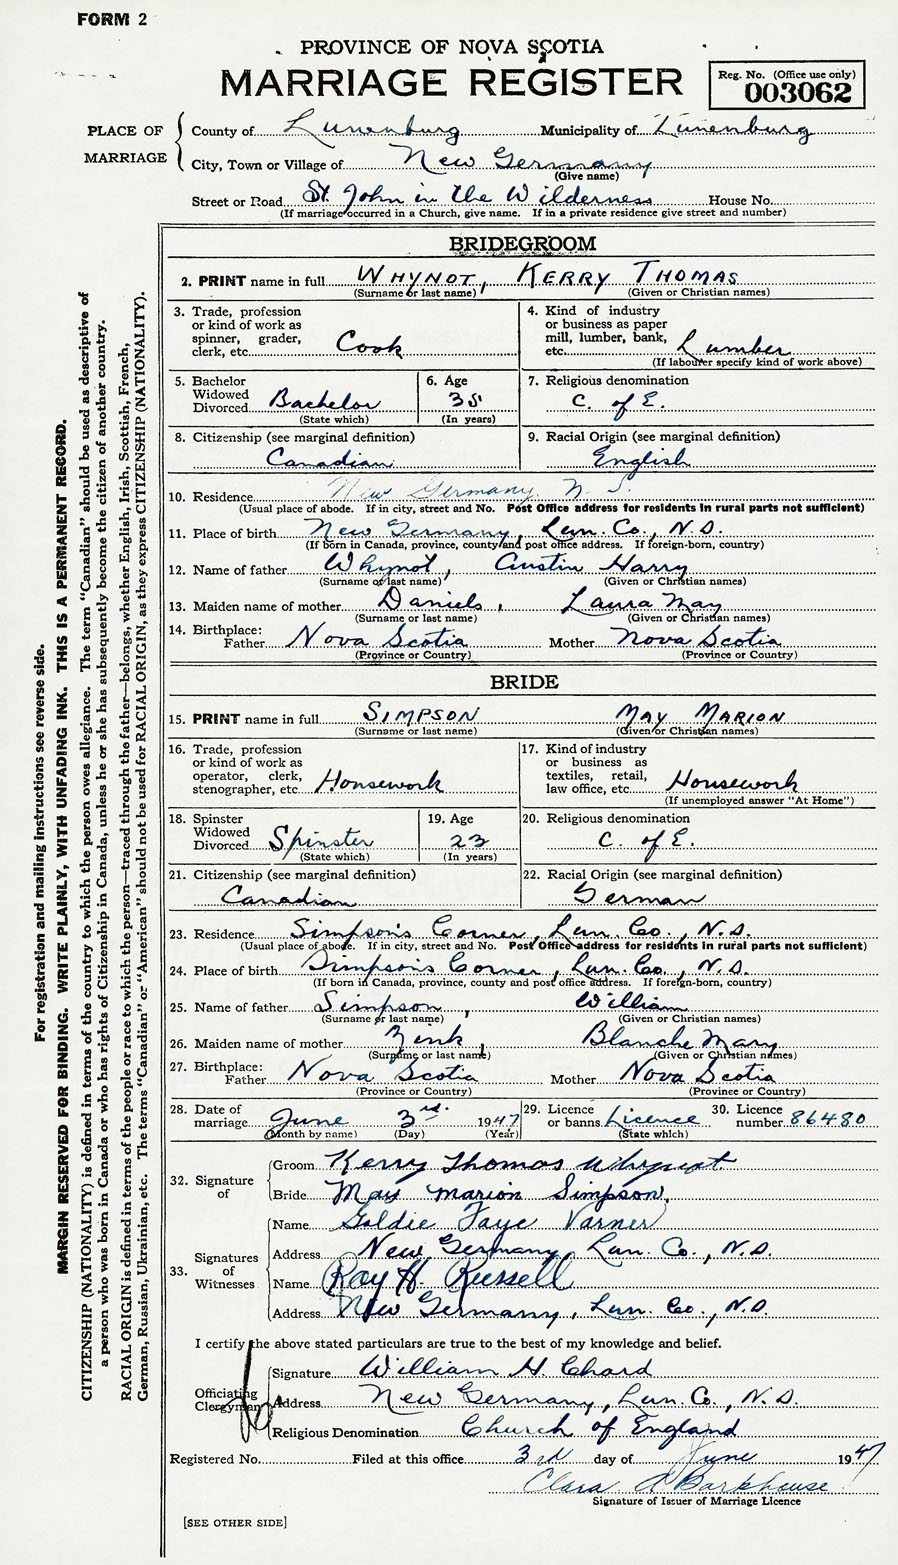 FORM 2
PROVINCE OF NOVA SCOTIA
MARRIAGE REGISTER
Reg. No. (Office use only)
003062
PLACE OF MARRIAGE
County of Lunenburg Municipality of Lunenburg
City, Town or Village of New Germany
(Give name)
Street or Road St. John in the Wilderness House No.
(If marriage occurred in a Church, give name. If in a private residence give street and number)
BRIDEGROOM
2. PRINT name in full WHYNOT, KERRY THOMAS
(Surname or last name) (Given or Christian names)
3. Trade, profession or kind of work as spinner, grader, clerk, etc. Cook
4. Kind of industry or business as paper mill, lumber, bank, etc. Lumber
(If labourer specify kind of work above)
5. Bachelor Widowed Divorced Bachelor
(State which)
6. Age 35
(In years)
7. Religious denomination
C. of E.
8. Citizenship (see marginal definition)
Canadian
9. Racial Origin (see marginal definition)
English
10. Residence New Germany N. S.
(Usual place of abode. If in city, street and No. Post Office address for residents in rural parts not sufficient)
11. Place of birth New Germany, Lun. Co., N.S.
(If born in Canada, province, county and post office address. If foreign-born, country)
12. Name of father Whynot, Austin Harry
(Surname or last name) (Given or Christian names)
13. Maiden name of mother Daniels, Laura May
(Surname or last name) (Given or Christian names)
14. Birthplace: Father Nova Scotia Mother Nova Scotia
(Province or Country) (Province or Country)
BRIDE
15. PRINT name in full SIMPSON MAY MARION
(Surname or last name) (Given or Christian names)
16. Trade, profession or kind of work as operator, clerk, stenographer, etc Housework
17. Kind of industry or business as textiles, retail, law office, etc. Housework
(If unemployed answer "At Home")
18. Spinster Widowed Divorced Spinster
(State which)
19. Age
23
(In years)
20. Religious denomination
C. of E.
21. Citizenship (see marginal definition)
Canadian
22. Racial Origin (see marginal definition)
German
23. Residence Simpson's Corner, Lun. Co., N.S.
(Usual place of abode. If in city, street and No. Post Office address for residents in rural parts not sufficient)
24. Place of birth Simpson's Corner, Lun. Co., N.S.
(If born in Canada, province, county and post office address. If foreign-born, country)
25. Name of father Simpson, William
(Surname or last name) (Given or Christian names)
26. Maiden name of mother Zink, Blanche Mary
(Surname or last name) (Given or Christian names)
27. Birthplace: Father Nova Scotia Mother Nova Scotia
(Province or Country) (Province or Country)
28. Date of marriage June 3rd. 1947
(Month by name) (Day) (Year)
29. Licence or banns Licence
(State which)
30. Licence number 86480
32. Signature of
Groom Kerry Thomas Whynot
Bride May Marion Simpson.
33. Signatures of Witnesses
Name Goldie Faye Varner
Address New Germany, Lun. Co., N.S.
Name Ray H. Russell
Address New Germany, Lun. Co., N.S.
I certify the above stated particulars are true to the best of my knowledge and belief.
Officiating Clergyman
Signature William H Chard
Address New Germany, Lun. Co., N.S.
Religious Denomination Church of England
Registered No. Filed at this office 3rd day of June 1947
Clara A Barkhouse
Signature of Issuer of Marriage Licence
[SEE OTHER SIDE]
For registration and mailing instructions see reverse side.
MARGIN RESERVED FOR BINDING. WRITE PLAINLY, WITH UNFADING INK. THIS IS A PERMANENT RECORD.
CITIZENSHIP (NATIONALITY) is defined in terms of the country to which the person owes allegiance. The term "Canadian" should be used as descriptive of
a person who was born in Canada or who has rights of Citizenship in Canada, unless he or she has subsequently become the citizen of another country.
RACIAL ORIGIN is defined in terms of the people or race to which the person—traced through the father—belongs, whether English, Irish, Scottish, French,
German, Russian, Ukrainian, etc. The terms "Canadian" or "American" should not be used for RACIAL ORIGIN, as they express CITIZENSHIP (NATIONALITY).